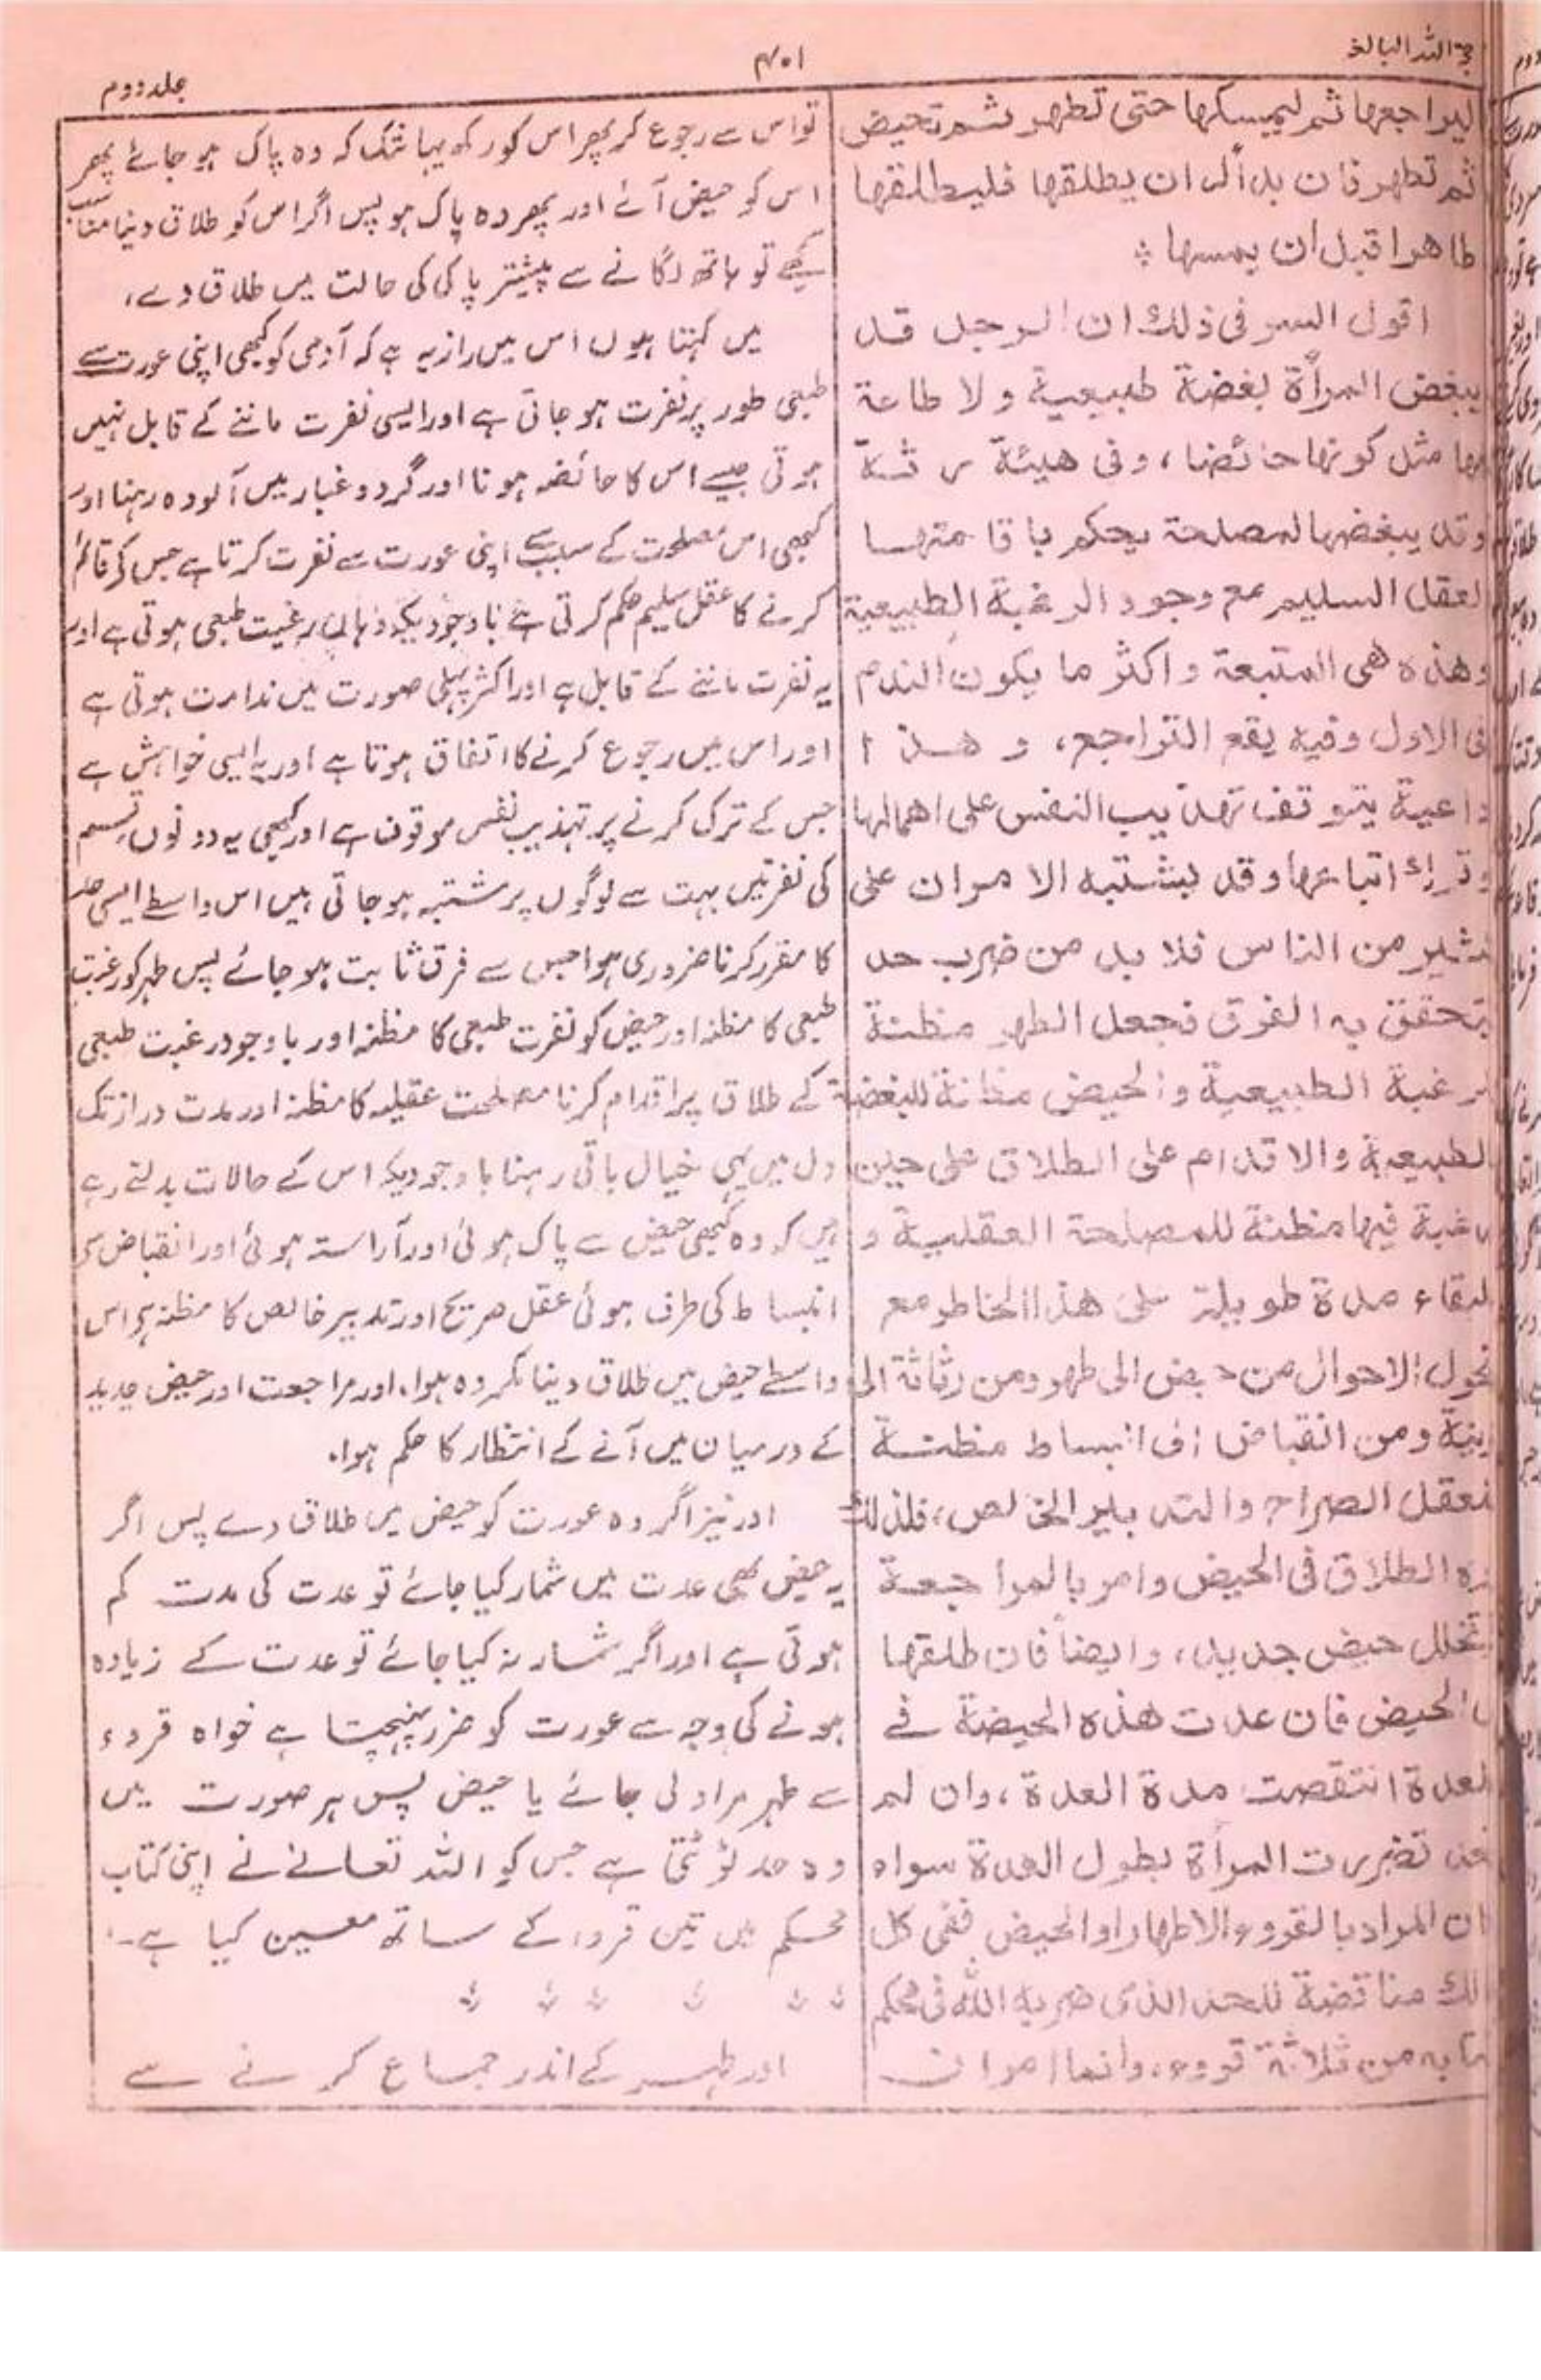 حجۃ اللہ البالغہ
۴۰۱
جلد دوم
ليراجعها ثم ليمسكها حتى تطهر ثم تحيض
ثم تطهر فان بدأله ان يطلقها فليطلقها
طاهرا قبل ان يمسها
اقول السر فى ذلك ان الرجل قد
يبغض المرأة بغضة طبيعية ولا طاعة
مثل كونها حائضا، وفى هيئة رثة
وقد يبغضها لمصلحة يحكم باقامتها
لعقل السليم مع وجود الرغبة الطبيعية
وهذه هى المتبعة واكثر ما يكون الندم
فى الاول وفيه يقع التراجع، وهذا
داعية يتوقف تهذيب النفس على اهمالها
وترك اتباعها وقد يشتبه الامران على
كثير من الناس فلا بد من ضرب حد
يتحقق به الفرق فجعل الطهر مظنة
لرغبة الطبيعية والحيض مظنة للبغضة
لطبيعية والاقدام على الطلاق على حين
رغبة فيها مظنة للمصلحة العقلية و
لبقاء مدة طويلة على هذا الخاطر مع
تحول الاحوال من حيض الى طهر ومن رثاثة الى
زينة ومن انقباض الى انبساط مظنة
لعقل الصراح والتدبير الخالص، فلذلك
كره الطلاق فى الحيض وامر بالمراجعة
تخلل حيض جديد، وايضاً فان طلقها
الحيض فان عدت هذه الحيضة فے
لعدة انتقصت مدة العدة، وان لم
تعد تضررت المرأة بطول العدة سواء
كان المراد بالقروء الاطهار او الحيض ففى كل
ذلك مناقضة للحد الذى ضربه الله فى محكم
كتابه من ثلاثة قروء، وانما امر ان
تو اس سے رجوع کر پھر اس کو رکھ یہاں تک کہ وہ پاک ہو جائے پھر
اس کو حیض آئے اور پھر وہ پاک ہو پس اگر اس کو طلاق دینا مناسب
سمجھے تو ہاتھ لگانے سے پیشتر پاکی کی حالت میں طلاق دے،
میں کہتا ہوں اس میں راز یہ ہے کہ آدمی کو کبھی اپنی عورت سے
طبعی طور پر نفرت ہو جاتی ہے اور ایسی نفرت ماننے کے قابل نہیں
ہوتی جیسے اس کا حائضہ ہونا اور گرد و غبار میں آلودہ رہنا اور
کبھی اس مصلحت کے سبب سے اپنی عورت سے نفرت کرتا ہے جس کو قائم
کرنے کا عقل سلیم حکم کرتی ہے باوجودیکہ وہاں رغبت طبعی ہوتی ہے اور
یہ نفرت ماننے کے قابل ہے اور اکثر پہلی صورت میں ندامت ہوتی ہے
اور اس میں رجوع کرنے کا اتفاق ہوتا ہے اور یہ ایسی خواہش ہے
جس کے ترک کرنے پر تہذیب نفس موقوف ہے اور کبھی یہ دونوں قسم
کی نفرتیں بہت سے لوگوں پر مشتبہ ہو جاتی ہیں اس واسطے ایسی حد
کا مقرر کرنا ضروری ہوا جس سے فرق ثابت ہو جائے پس طہر کو رغبت
طبعی کا مظنہ اور حیض کو نفرت طبعی کا مظنہ اور باوجود رغبت طبعی
کے طلاق پر اقدام کرنا مصلحت عقلیہ کا مظنہ اور مدت دراز تک
دل میں یہی خیال باقی رہنا باوجودیکہ اس کے حالات بدلتے رہے
ہیں کہ وہ کبھی حیض سے پاک ہوئی اور آراستہ ہوئی اور انقباض سے
انبساط کی طرف ہوئی عقل صریح اور تدبیر خالص کا مظنہ ہے اس
واسطے حیض میں طلاق دینا مکروہ ہوا، اور مراجعت اور حیض جدید
کے درمیان میں آنے کے انتظار کا حکم ہوا۔
اور نیز اگر وہ عورت کو حیض میں طلاق دے پس اگر
یہ حیض بھی عدت میں شمار کیا جائے تو عدت کی مدت کم
ہوتی ہے اور اگر شمار نہ کیا جائے تو عدت کے زیادہ
ہونے کی وجہ سے عورت کو ضرر پہنچتا ہے خواہ قروء
سے طہر مراد لی جائے یا حیض پس ہر صورت میں
وہ حد ٹوٹتی ہے جس کو اللہ تعالےٰ نے اپنی کتاب
محکم میں تین قروء کے ساتھ معین کیا ہے۔
اور طہر کے اندر جماع کرنے سے